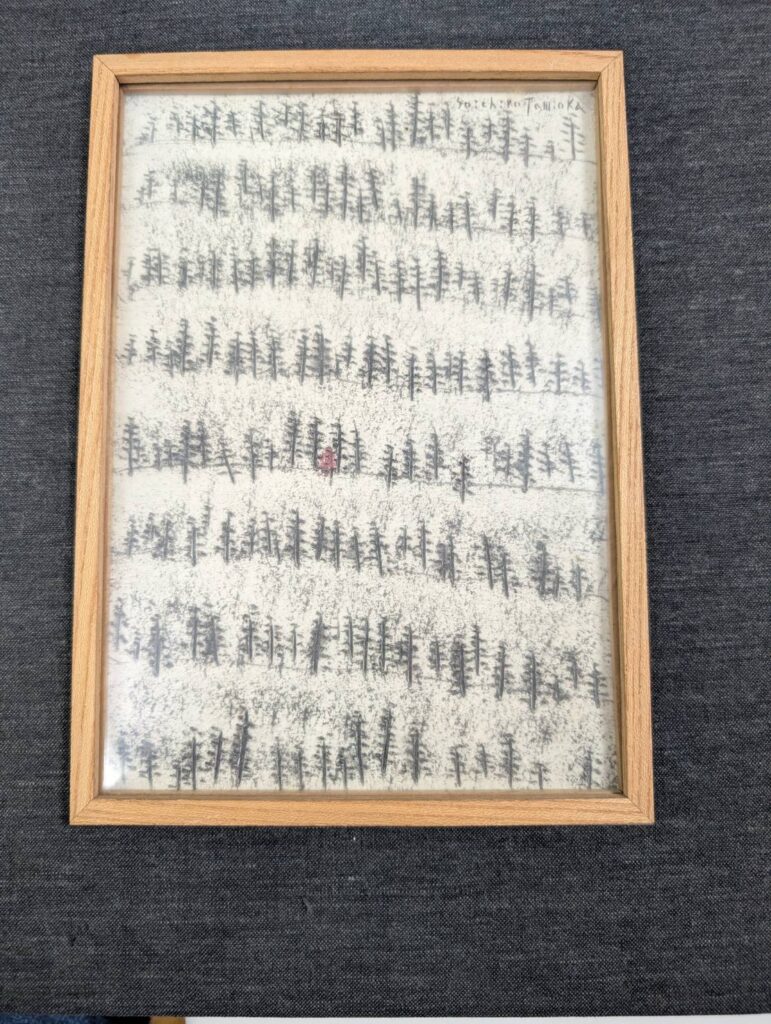 Soichiro Tomioka